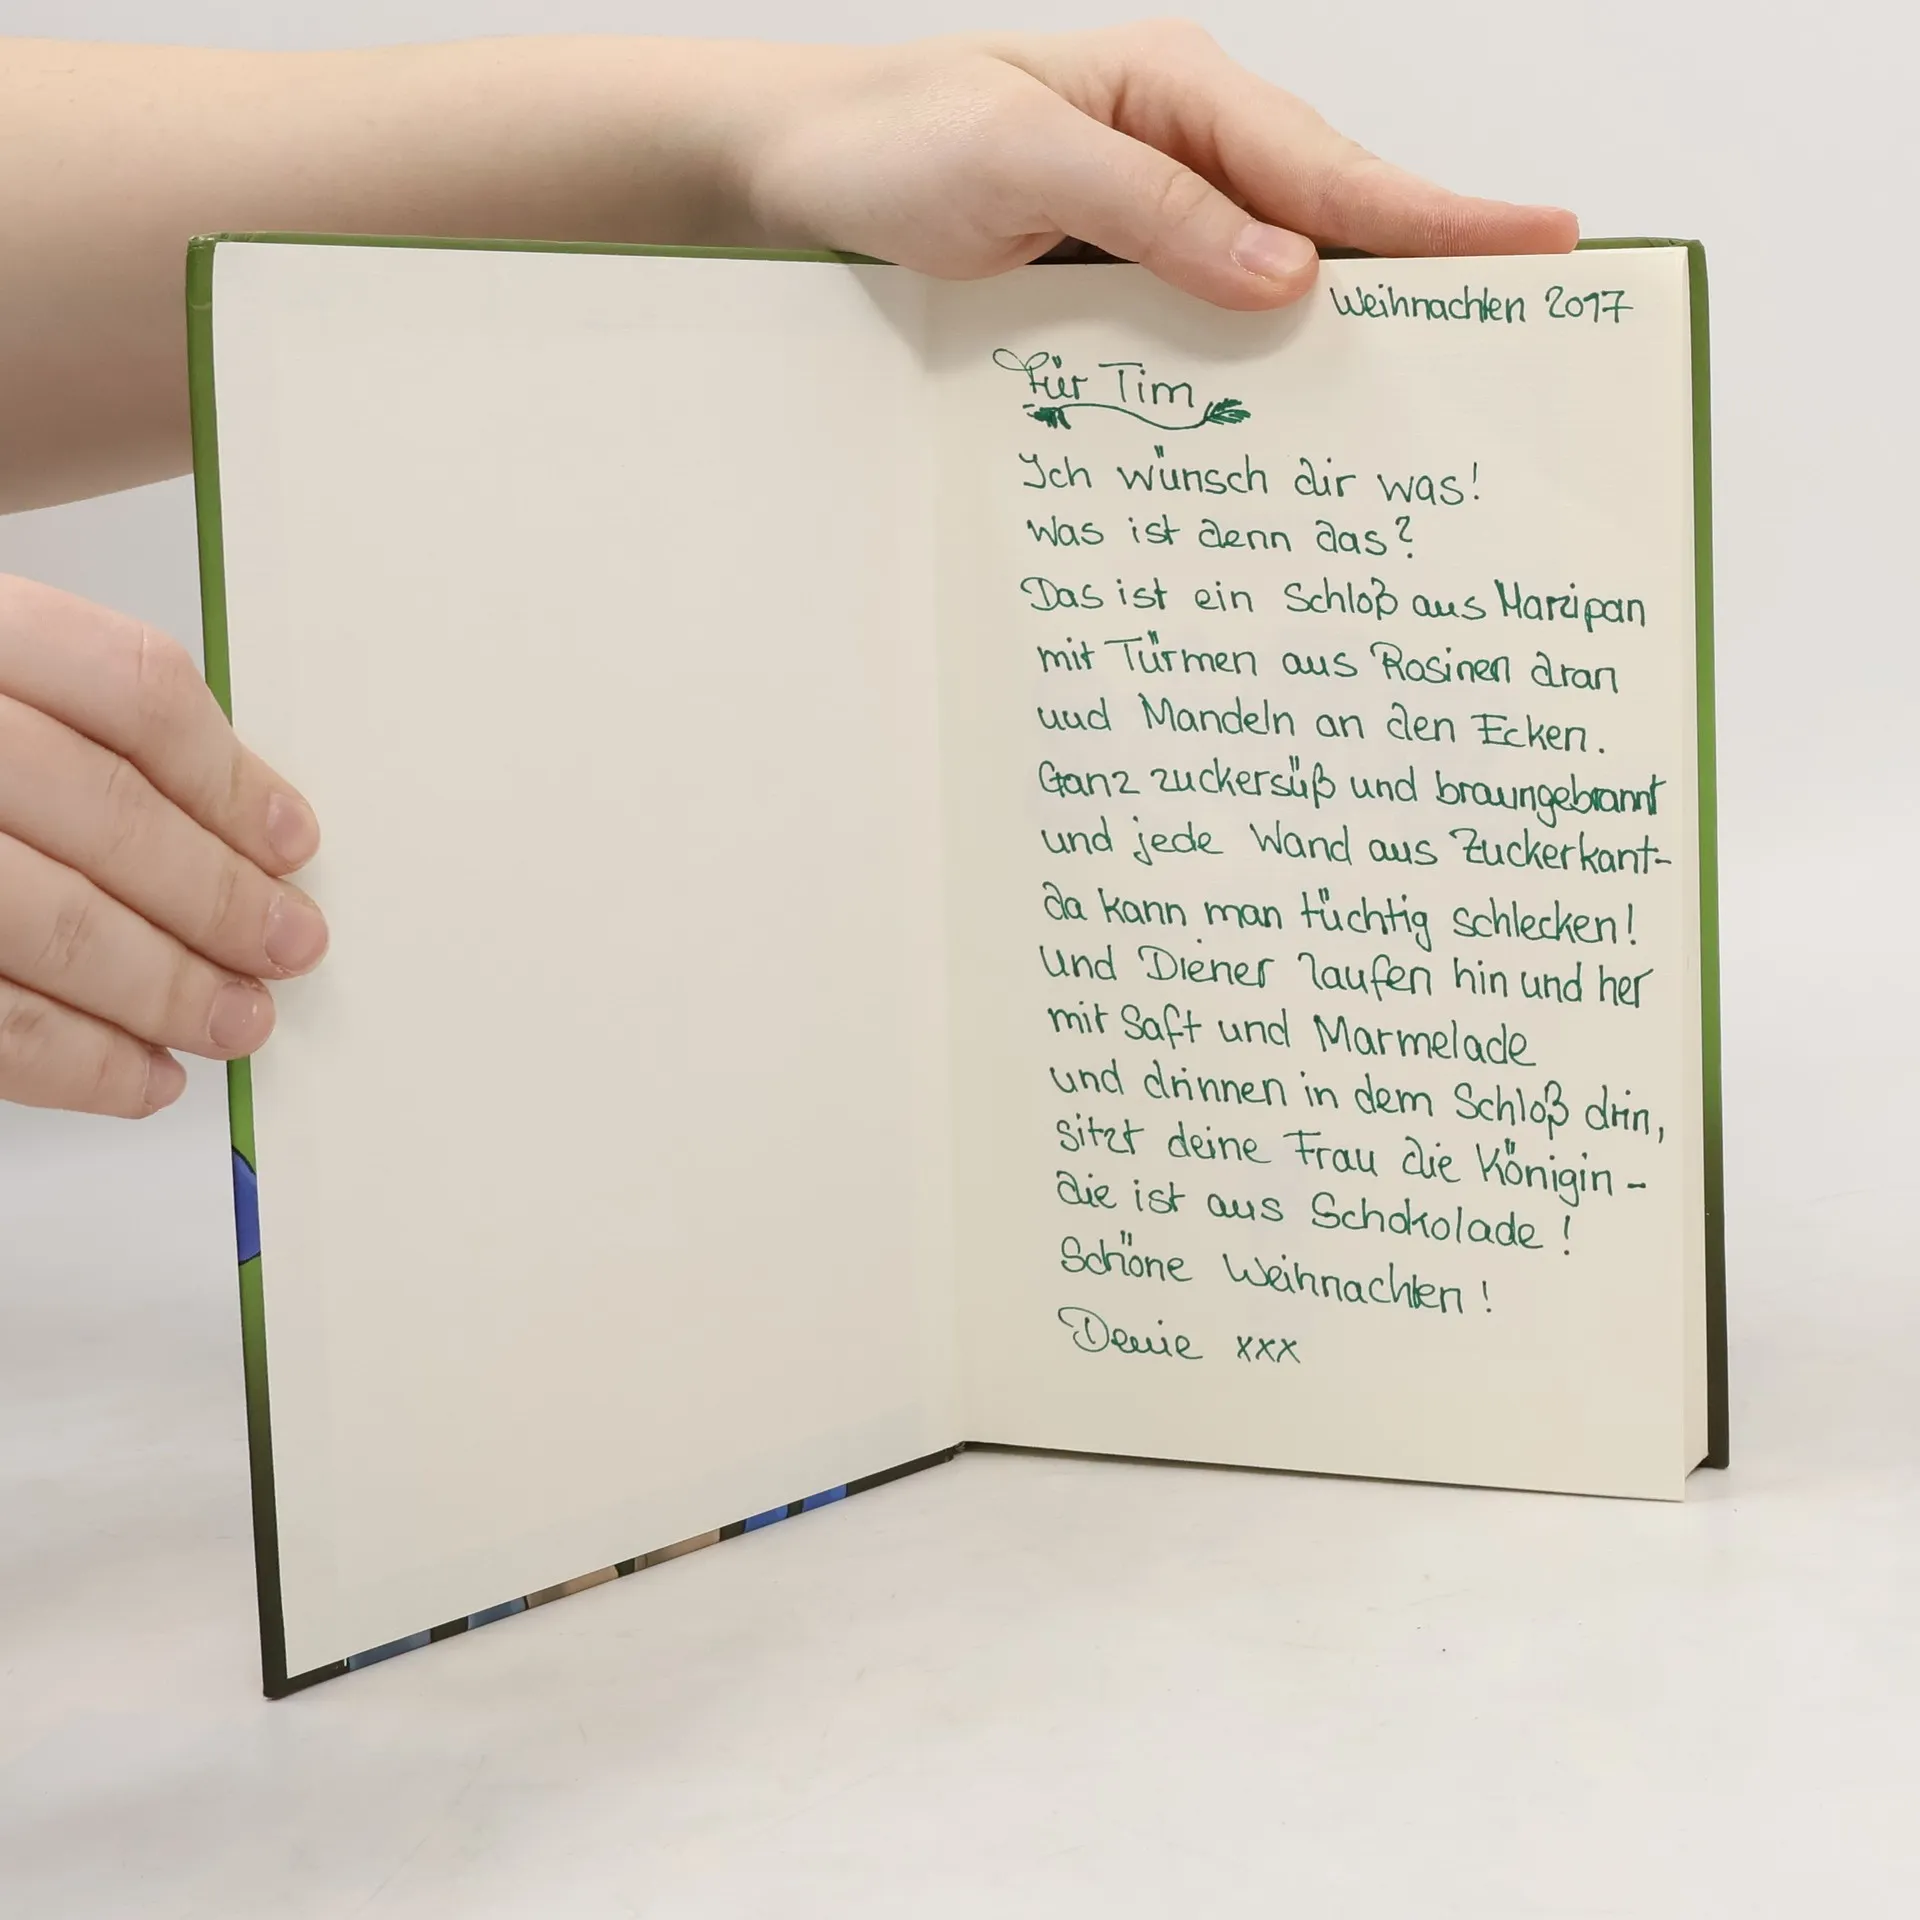 Weihnachten 2017
Für Tim
Ich wünsch dir was!
Was ist denn das?
Das ist ein Schloß aus Marzipan
mit Türmen aus Rosinen dran
und Mandeln an den Ecken.
Ganz zuckersüß und braungebrannt
und jede Wand aus Zuckerkant-
da kann man tüchtig schlecken!
Und Diener laufen hin und her
mit Saft und Marmelade
und drinnen in dem Schloß drin,
sitzt deine Frau die Königin -
die ist aus Schokolade!
Schöne Weihnachten!
xxx